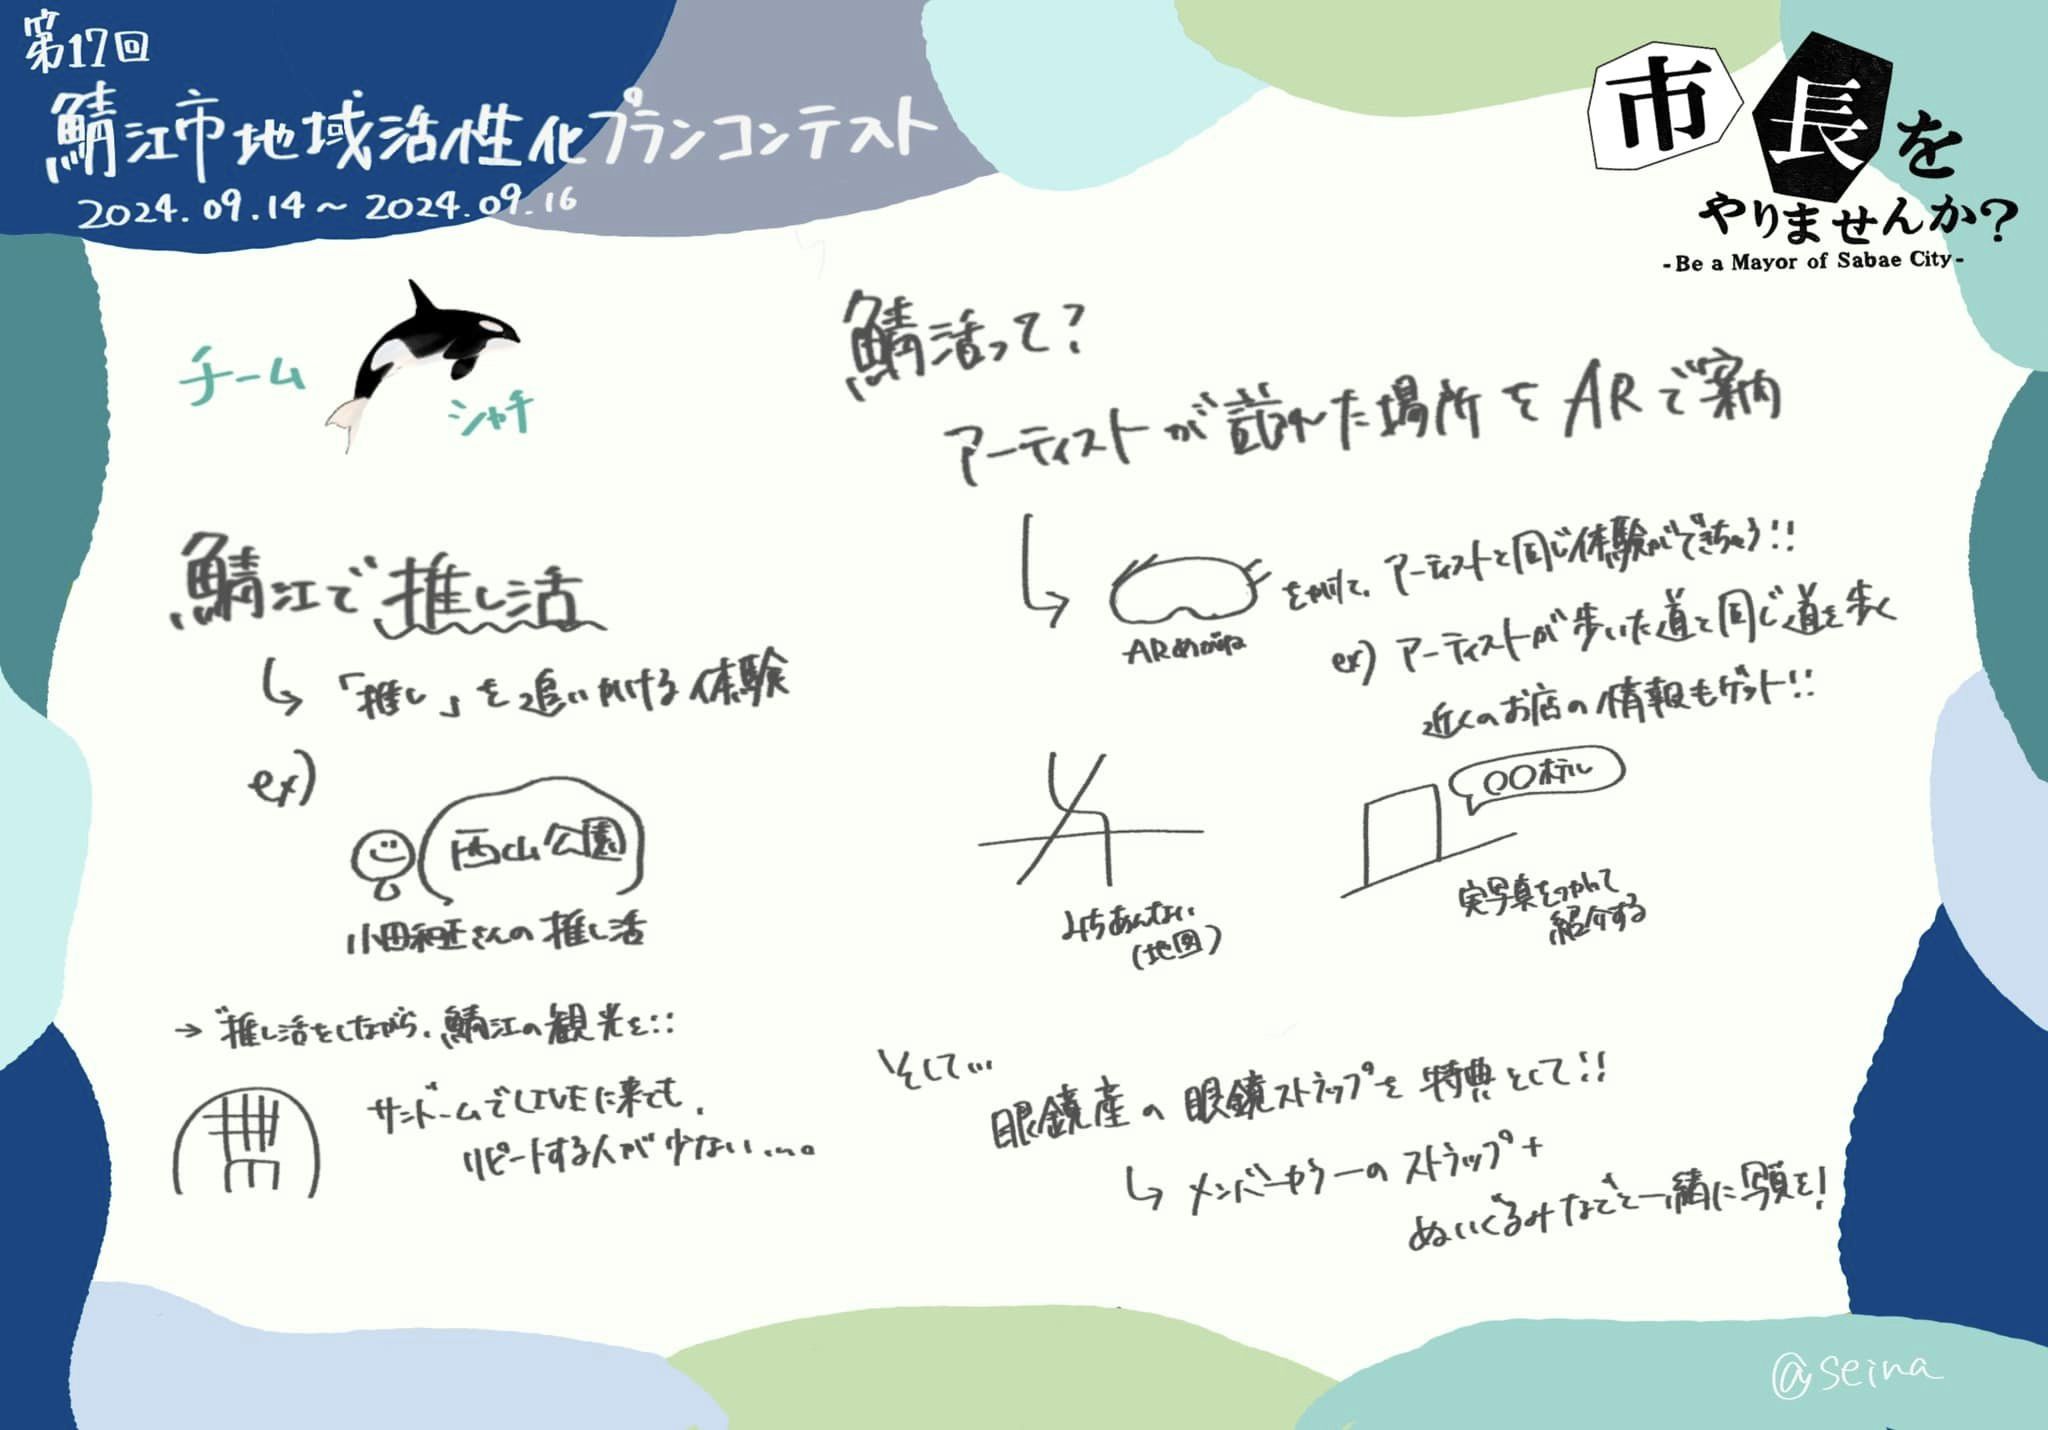 第17回
鯖江市地域活性化プランコンテスト
2024.09.14～2024.09.16
市長を
やりませんか？
-Be a Mayor of Sabae City-
チーム
シャチ
鯖江で推し活
「推し」を追いかける体験
ex)
西山公園
小田和正さんの推し活
→推し活をしながら、鯖江の観光を!!
サンドームでLIVEに来ても、
リピートする人が少ない...。
鯖活って？
アーティストが訪れた場所をARで案内
ARめがね
をかけて、アーティストと同じ体験ができちゃう!!
ex) アーティストが歩いた道と同じ道を歩く
近くのお店の情報もゲット!!
みちあんない
(地図)
〇〇ホテル
実写真をつかって
紹介する
そして...
眼鏡産の眼鏡ストラップを特典として!!
メンバーカラーのストラップ+
ぬいぐるみなどと一緒に写真を!
@seina